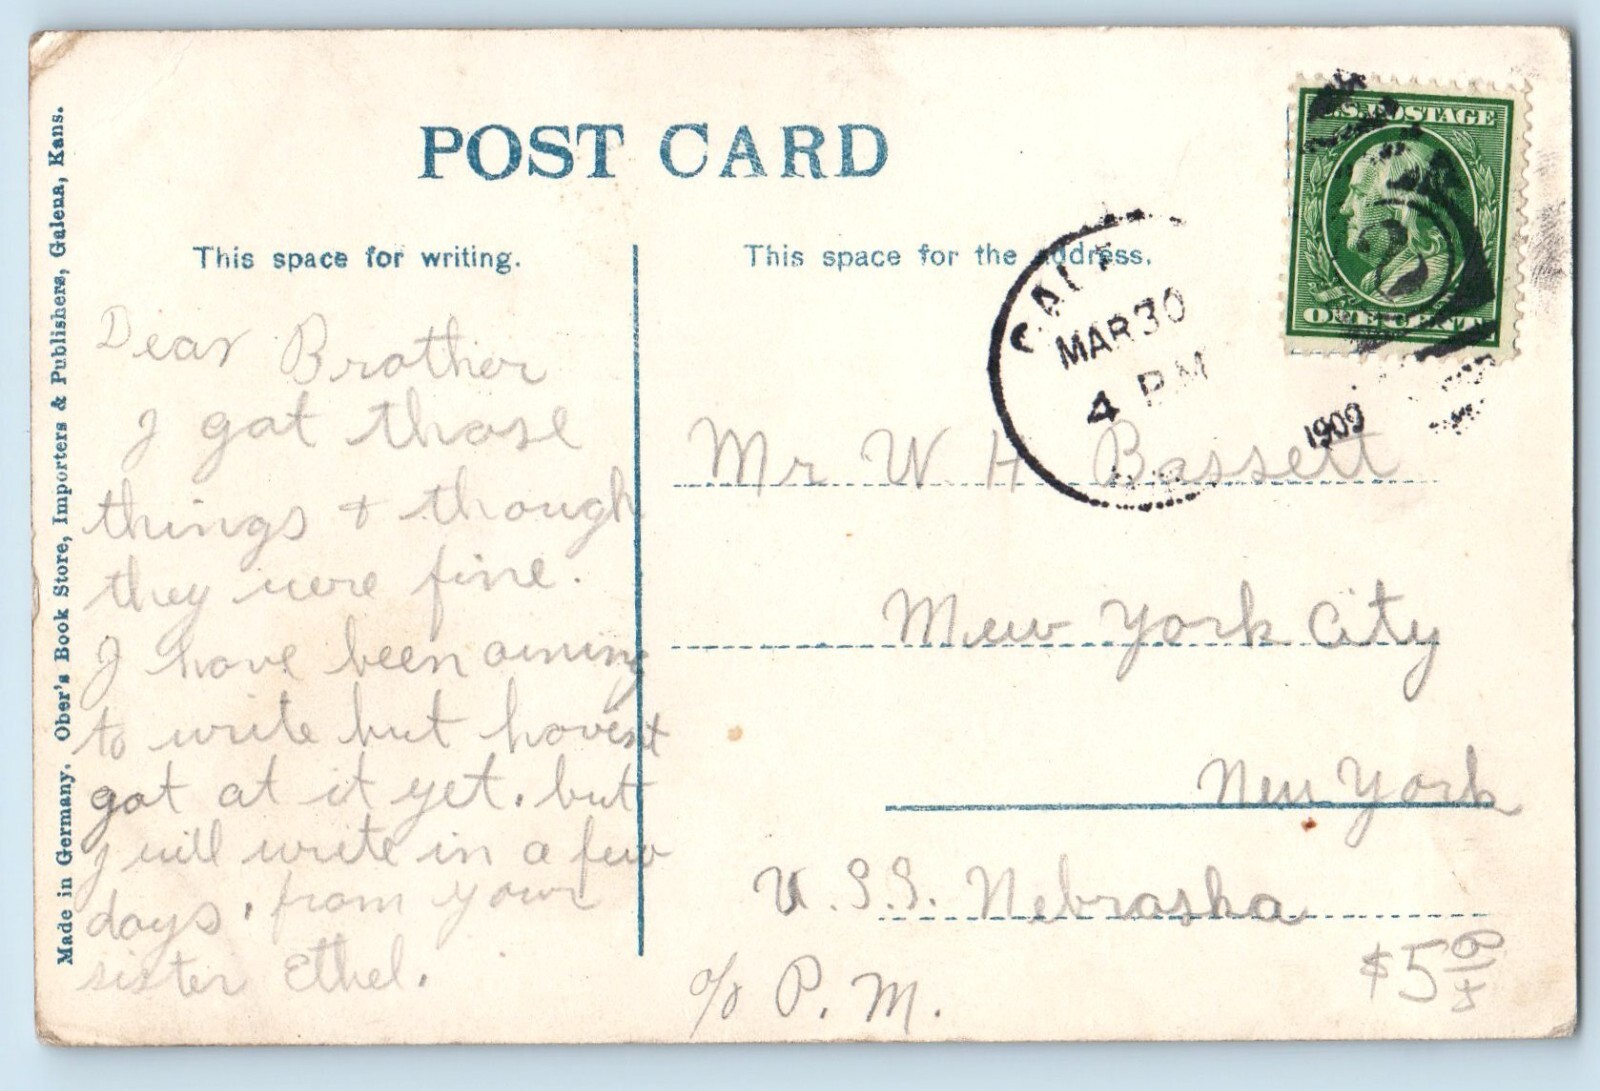 POST CARD
This space for writing.
This space for the address.
Made in Germany. Ober's Book Store, Importers & Publishers, Galena, Kans.
U.S. POSTAGE
2
ONE CENT
MAR 30
4 PM
1909
Dear Brother
I got those
things & though
they were fine.
I have been aiming
to write but havent
got at it yet. but
I will write in a few
days, from your
sister Ethel.
Mr W H Bassett
Mew York City
New York
U.S.S. Nebraska
c/o P.M.
$5